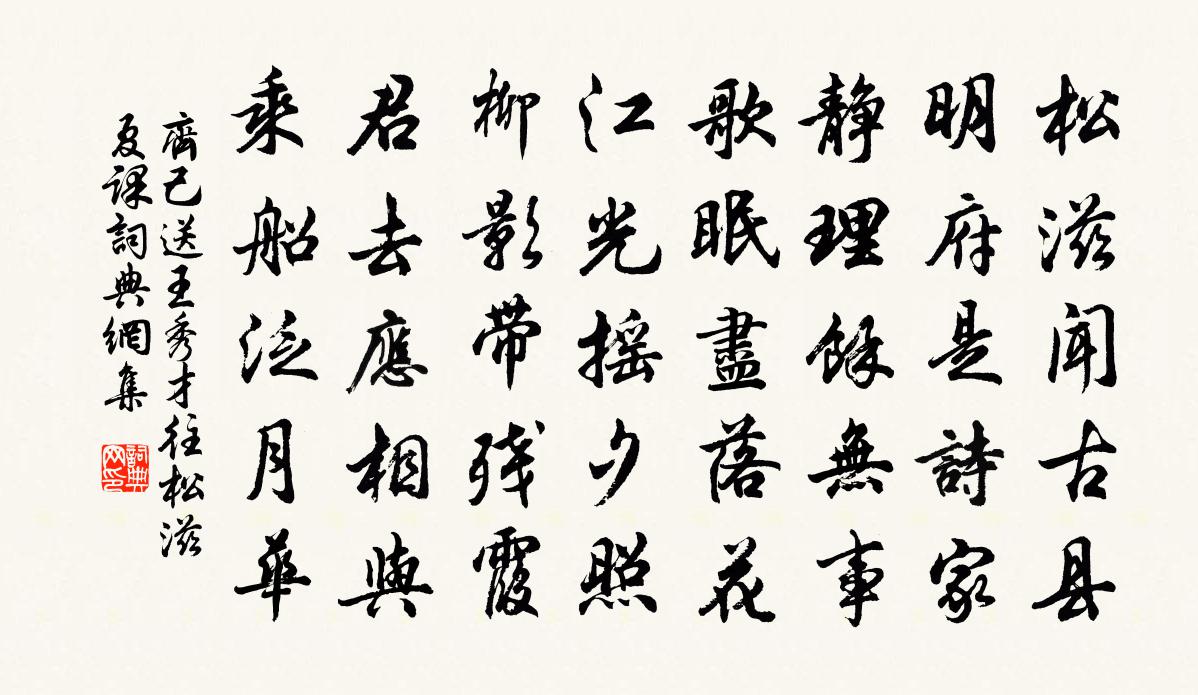 松滋聞古县
明府是詩家
静理餘無事
歌眠盡落花
江光摇夕照
柳影带残霞
君去應相與
乘船泛月華
齊己送王秀才往松滋
夏課詞典網集
詞典网印